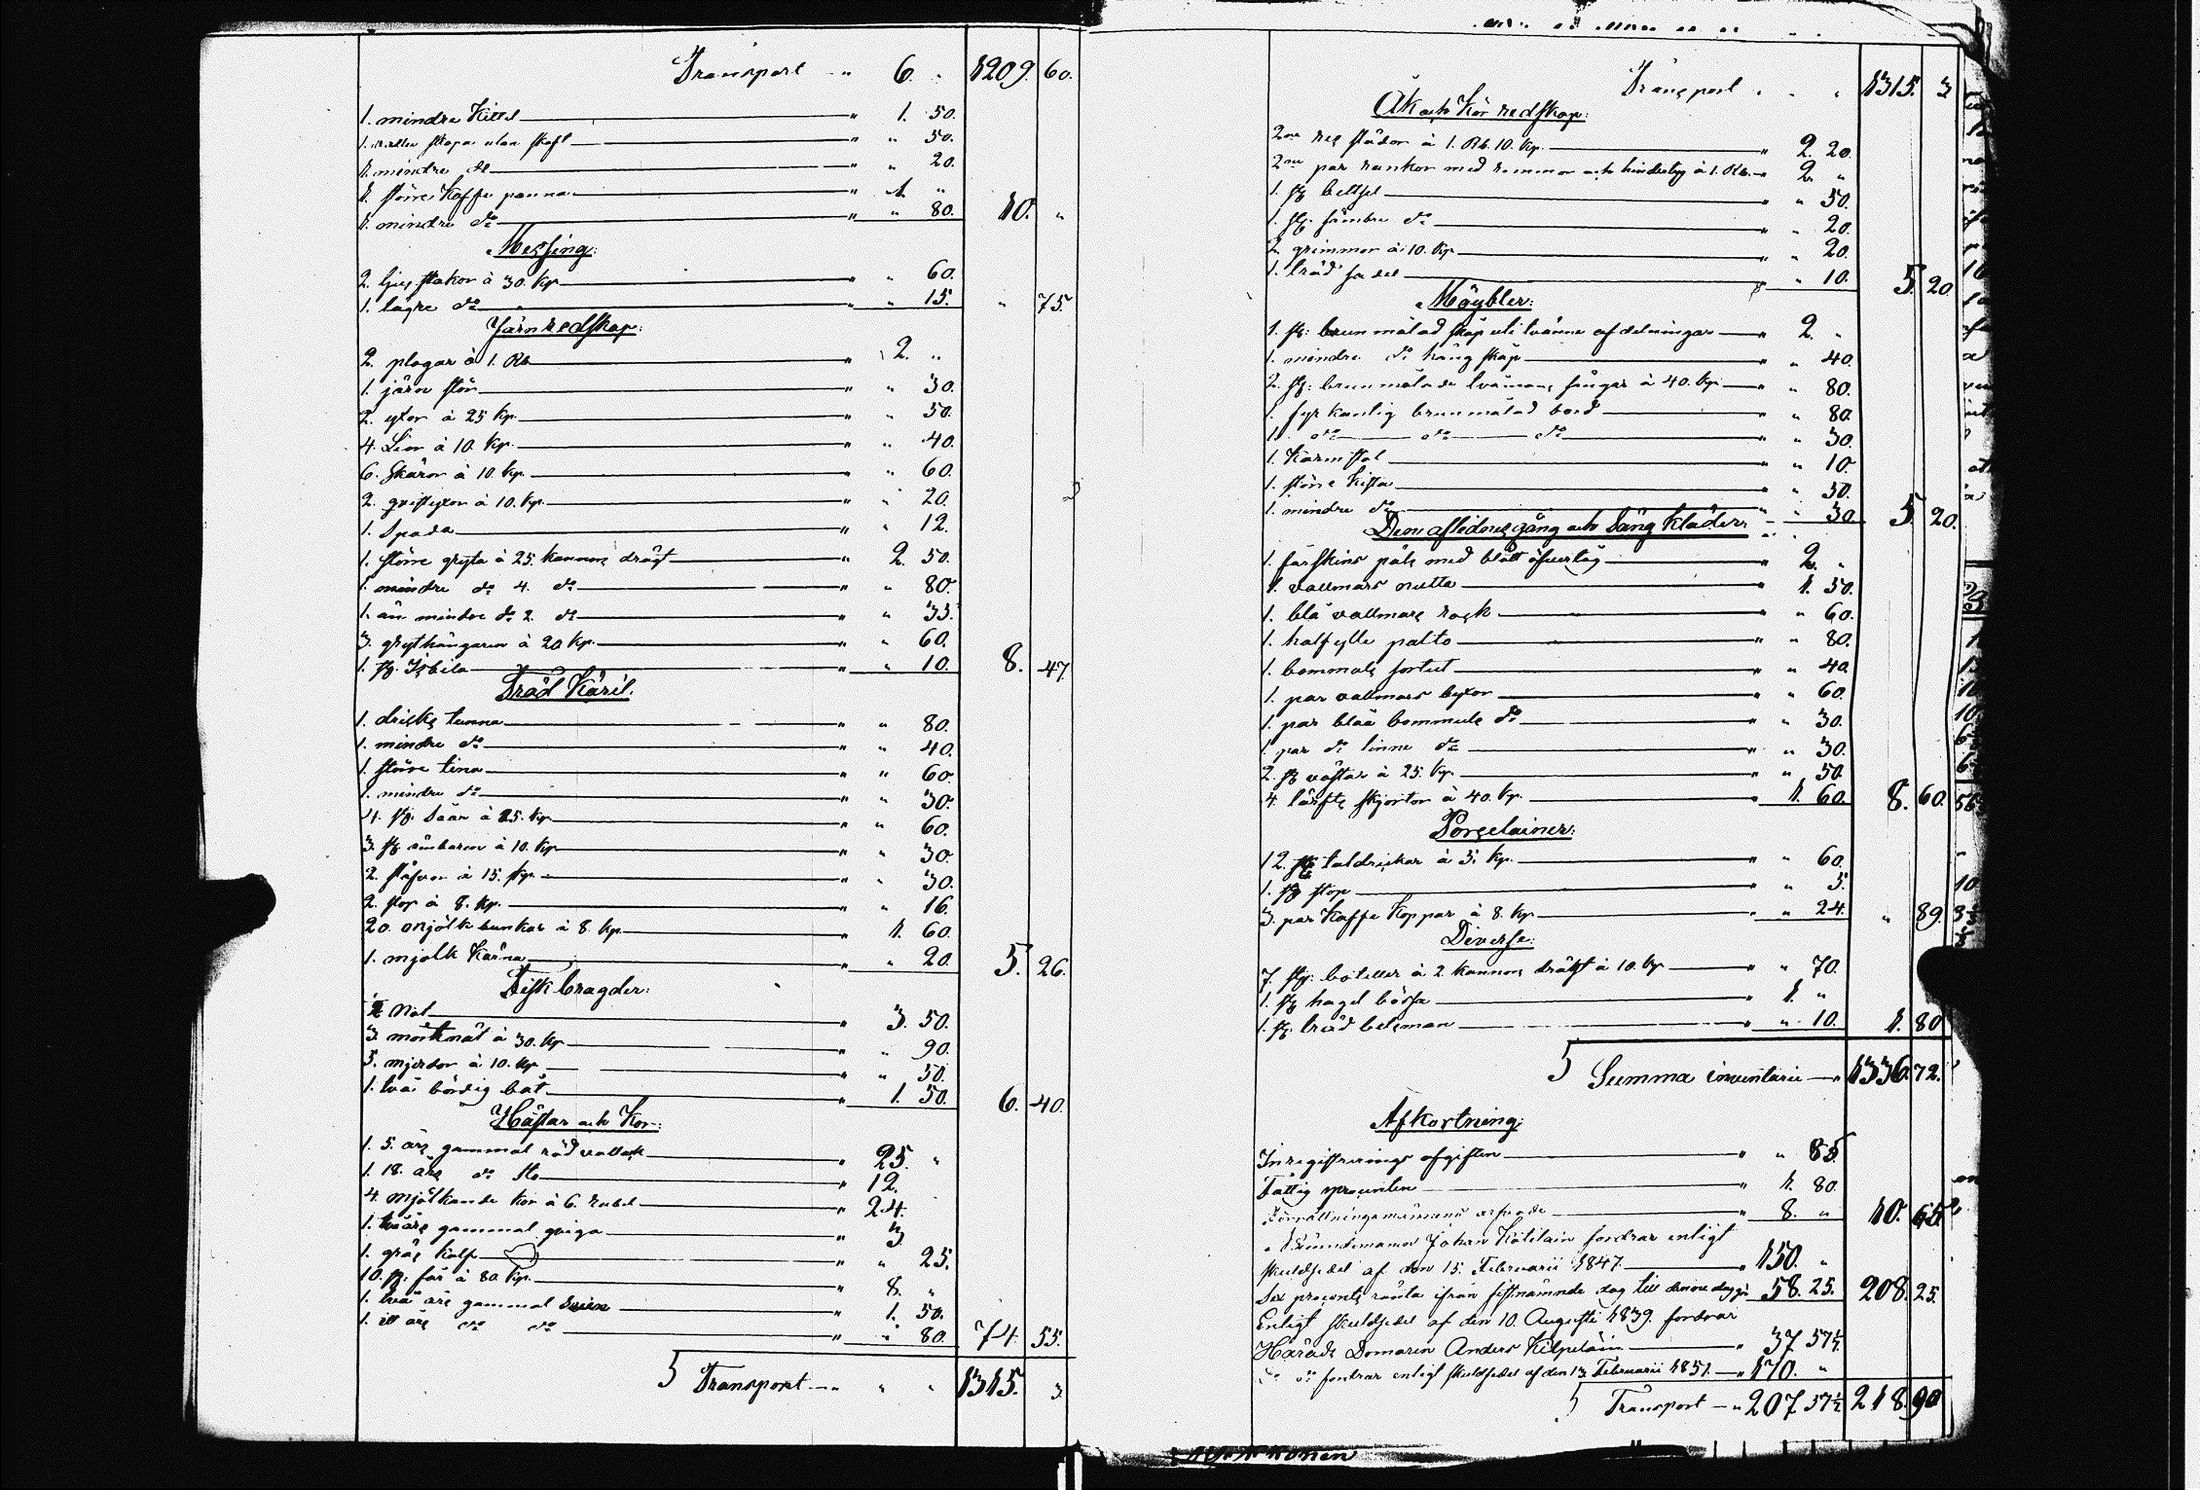 Transport " 6. " 1209. 60.
1. mindre Kittel " 1. 50.
1. skopa utan skaft " " 50.
1. mindre do " " 20.
1. större Kaffe panna " 1. "
1. mindre do " " 80. 10. "
Messing:
2. ljus stakor à 30. Kp " " 60.
1. lägre do " " 15. " 75.
Järn redskap:
2. plogar à 1. Rb " 2. "
1. järn stör " " 30.
2. yxor à 25 Kp. " " 50.
4. Lior à 10. Kp. " " 40.
6. Skäror à 10. Kp. " " 60.
2. qvistyxor à 10. Kp. " " 20.
1. Spada " " 12.
1. större gryta à 25. kannors drägt " 2. 50.
1. mindre do 4. do " " 80.
1. än mindre do 2. do " " 35.
3. grythängaren à 20 Kp. " " 60.
1. st. Isbila " " 10. 8. 47.
Träd Käril.
1. dricks tunna " " 80.
1. mindre do " " 40.
1. större tina " " 60.
1. mindre do " " 30.
4. st. Såår à 15. Kp " " 60.
3. st ämbaren à 10. Kp " " 30.
2. stäfvor à 15. Kp. " " 30.
2. stop à 8. Kp. " " 16.
20. mjölk bunkar à 8 Kp. " 1. 60.
1. mjölk Kärna " " 20. 5. 26.
Fisk bragder:
1 Not " 3. 50.
3. mörtnät à 30. Kp " " 90.
5. mjerdor à 10. Kp " " 50.
1. två bördig båt " 1. 50. 6. 40.
Hästar och Kor:
1. 5. års gammal röd vallack " 25. "
1. 18. års do Sto " 12.
4. mjölkande kor à 6. rubel " 24.
1. två års gammal qviga " 3
1. gräs kalf " " 25.
10. st. får à 80 Kp. " 8. "
1. två års gammal Svin " 1. 50.
1. ett års do do " " 80. 74. 55.
Transport " " " 1315. 3

Transport " " " 1315. 3
Åk och Kör redskap:
2ne res slädor à 1. Rb. 10. Kp. " 2. 20.
2ne par rankor med remmor och hindertyg à 1. Rb. " 2. "
1. st betsel " " 50.
1. st. sämbre do " " 20.
2. grimmor à 10. Kp " " 20.
1. träd sadel " " 10. 5. 20
Möybler:
1. st: brun målad skåp uti tvänne afdelningar " 2. "
1. mindre do häng skåp " " 40.
2. st: brun målade tvämans sängar à 40. Kp " " 80.
1. fyrkantig brunmålad bord " " 80.
1. do do do " " 30.
1. Karmstol " " 10.
1. större Kista " " 50.
1. mindre do " " 30. 5. 20.
Den aflidnes gång och Säng Kläder:
1. fårskins päls med blått öfvertåg " 2. "
1. vallmars mutta " 1. 50.
1. blå vallmars rock " " 60.
1. halfylle palto " " 80.
1. bommuls sortut " " 40.
1. par vallmars byxor " " 60.
1. par blåa bommuls do " " 30.
1. par do linne do " " 30.
2. st västar à 25. Kp. " " 50.
4. lärfts skjortor à 40. Kp. " 1. 60. 8. 60.
Porcelainer:
12. st taldrickar à 5. Kp. " " 60.
1. st stop " " 5.
3. par Kaffe Koppar à 8. Kp " " 24. " 89.
Diverse:
7. st: boteller à 2. kannors drägt à 10. Kp " " 70.
1. st hagel bössa " 1. "
1. st. träd betsman " " 10. 1. 80
Summa inventarii " 1336. 72.
Afkortning:
Inregistrerings afgiften " " 85
Fattig procenten " 1. 80.
Förrättningsmännens arfvode " 8. " 10. 65
Johan Kätilain fordrar enligt
skuldsedel af den 15. Februarii 1847. " 150. "
Sex procents ränta ifrån sistnämnde dag till denne dag 58. 25. 208. 25.
Enligt skuldsedel af den 10. Augusti 1839. fordrar
Härads Domaren Anders Kilpeläin " 37 57½
Do do fordrar enligt skuldsedel af den 13 Februarii 1851. " 170. "
Transport " 207 57½ 218. 90